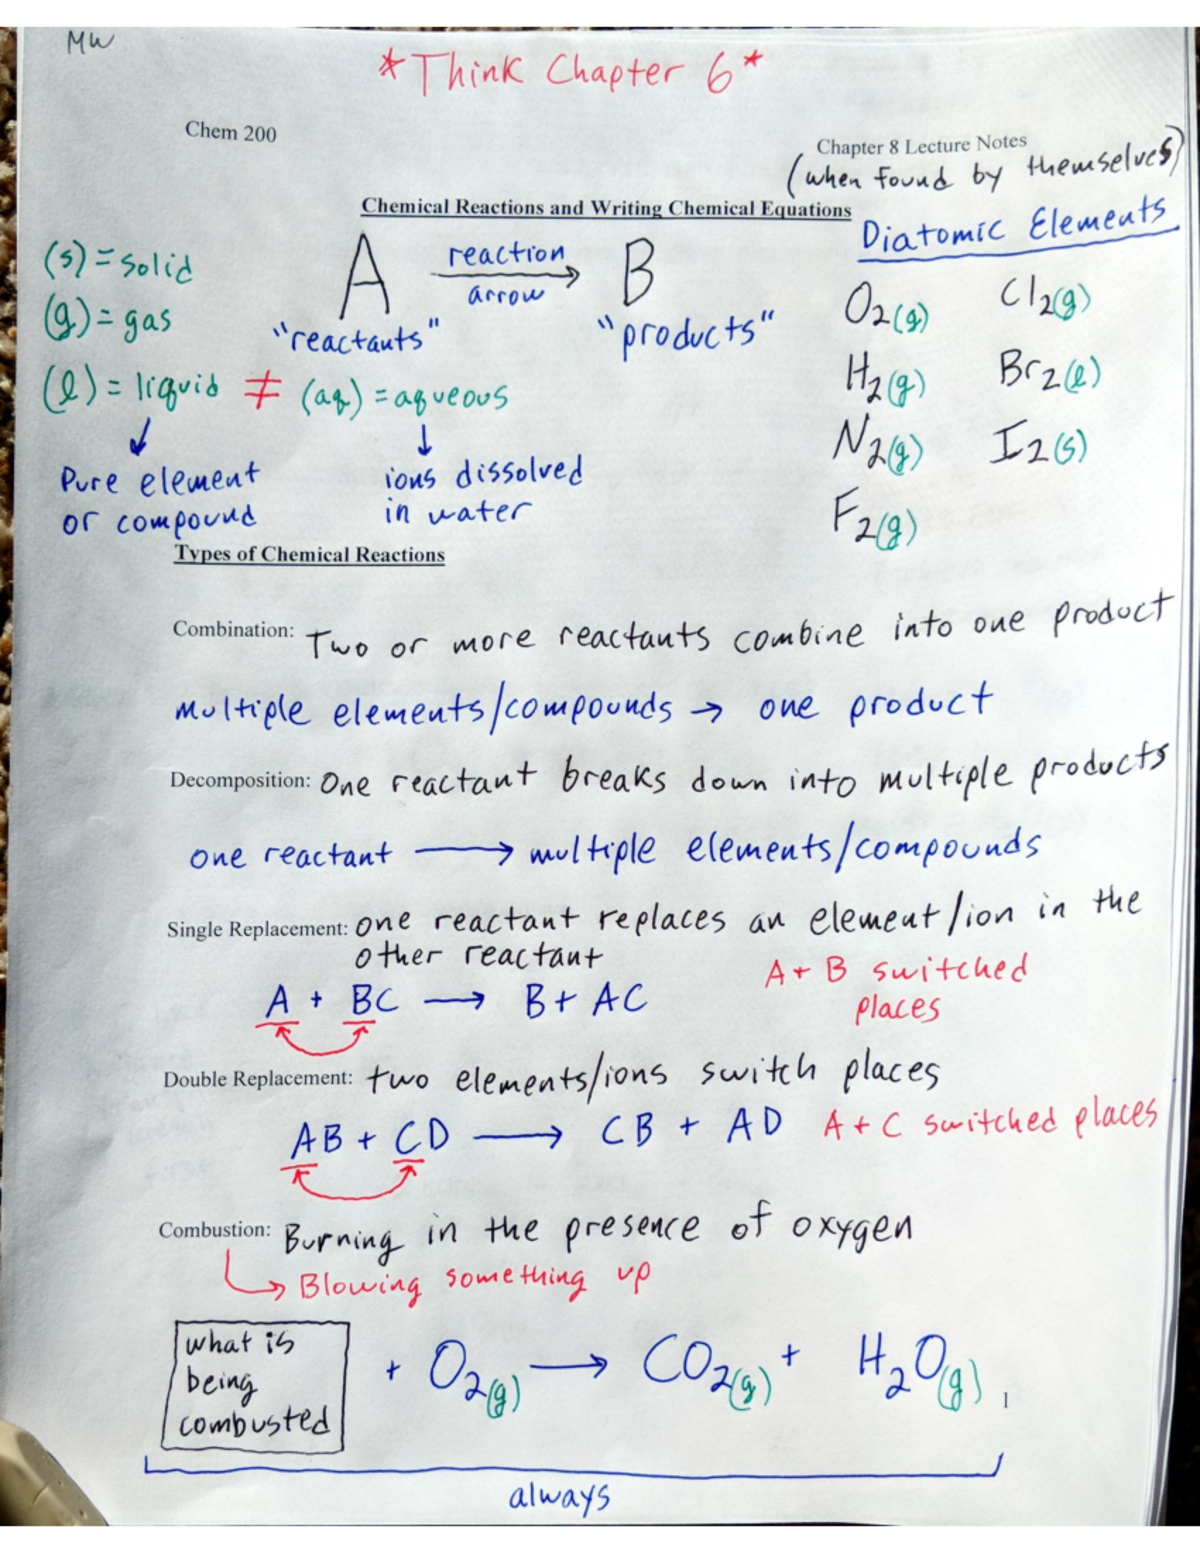 MW
*Think Chapter 6*
Chem 200
Chapter 8 Lecture Notes
(when found by themselves)
Chemical Reactions and Writing Chemical Equations
Diatomic Elements
(s) = solid
(g) = gas
(l) = liquid ≠ (aq) = aqueous
A reaction arrow → B
"reactants" "products"
↓ ↓
Pure element
or compound
ions dissolved
in water
O2(g) Cl2(g)
H2(g) Br2(l)
N2(g) I2(s)
F2(g)
Types of Chemical Reactions
Combination: Two or more reactants combine into one product
multiple elements/compounds → one product
Decomposition: One reactant breaks down into multiple products
one reactant → multiple elements/compounds
Single Replacement: one reactant replaces an element/ion in the
other reactant
A + B switched
places
A + BC → B + AC
Double Replacement: two elements/ions switch places
AB + CD → CB + AD A + C switched places
Combustion: Burning in the presence of oxygen
↳ Blowing something up
what is
being
combusted
+ O2(g) → CO2(g) + H2O(g)
1
always